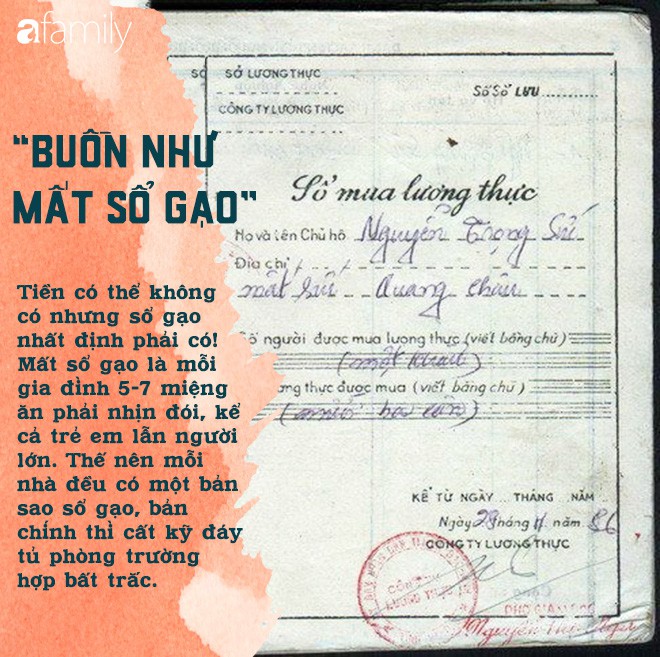 afamily
"BUỒN NHƯ
MẤT SỔ GẠO"
Tiền có thể không
có nhưng sổ gạo
nhất định phải có!
Mất sổ gạo là mỗi
gia đình 5-7 miệng
ăn phải nhịn đói, kể
cả trẻ em lẫn người
lớn. Thế nên mỗi
nhà đều có một bản
sao sổ gạo, bản
chính thì cất kỹ đáy
tủ phòng trường
hợp bất trắc.
SỞ LƯƠNG THỰC
CÔNG TY LƯƠNG THỰC
Số Sổ LƯU
Sổ mua lương thực
Họ và tên Chủ hộ Nguyễn Trọng Sử
Địa chỉ
mất sức Quang Châu
Số người được mua lương thực (viết bằng chữ)
(một khẩu)
ương thực được mua (viết bằng chữ)
KỂ TỪ NGÀY THÁNG NĂM
Ngày 28 tháng 11 năm 86
CÔNG TY LƯƠNG THỰC
PHÓ GIÁM ĐỐC